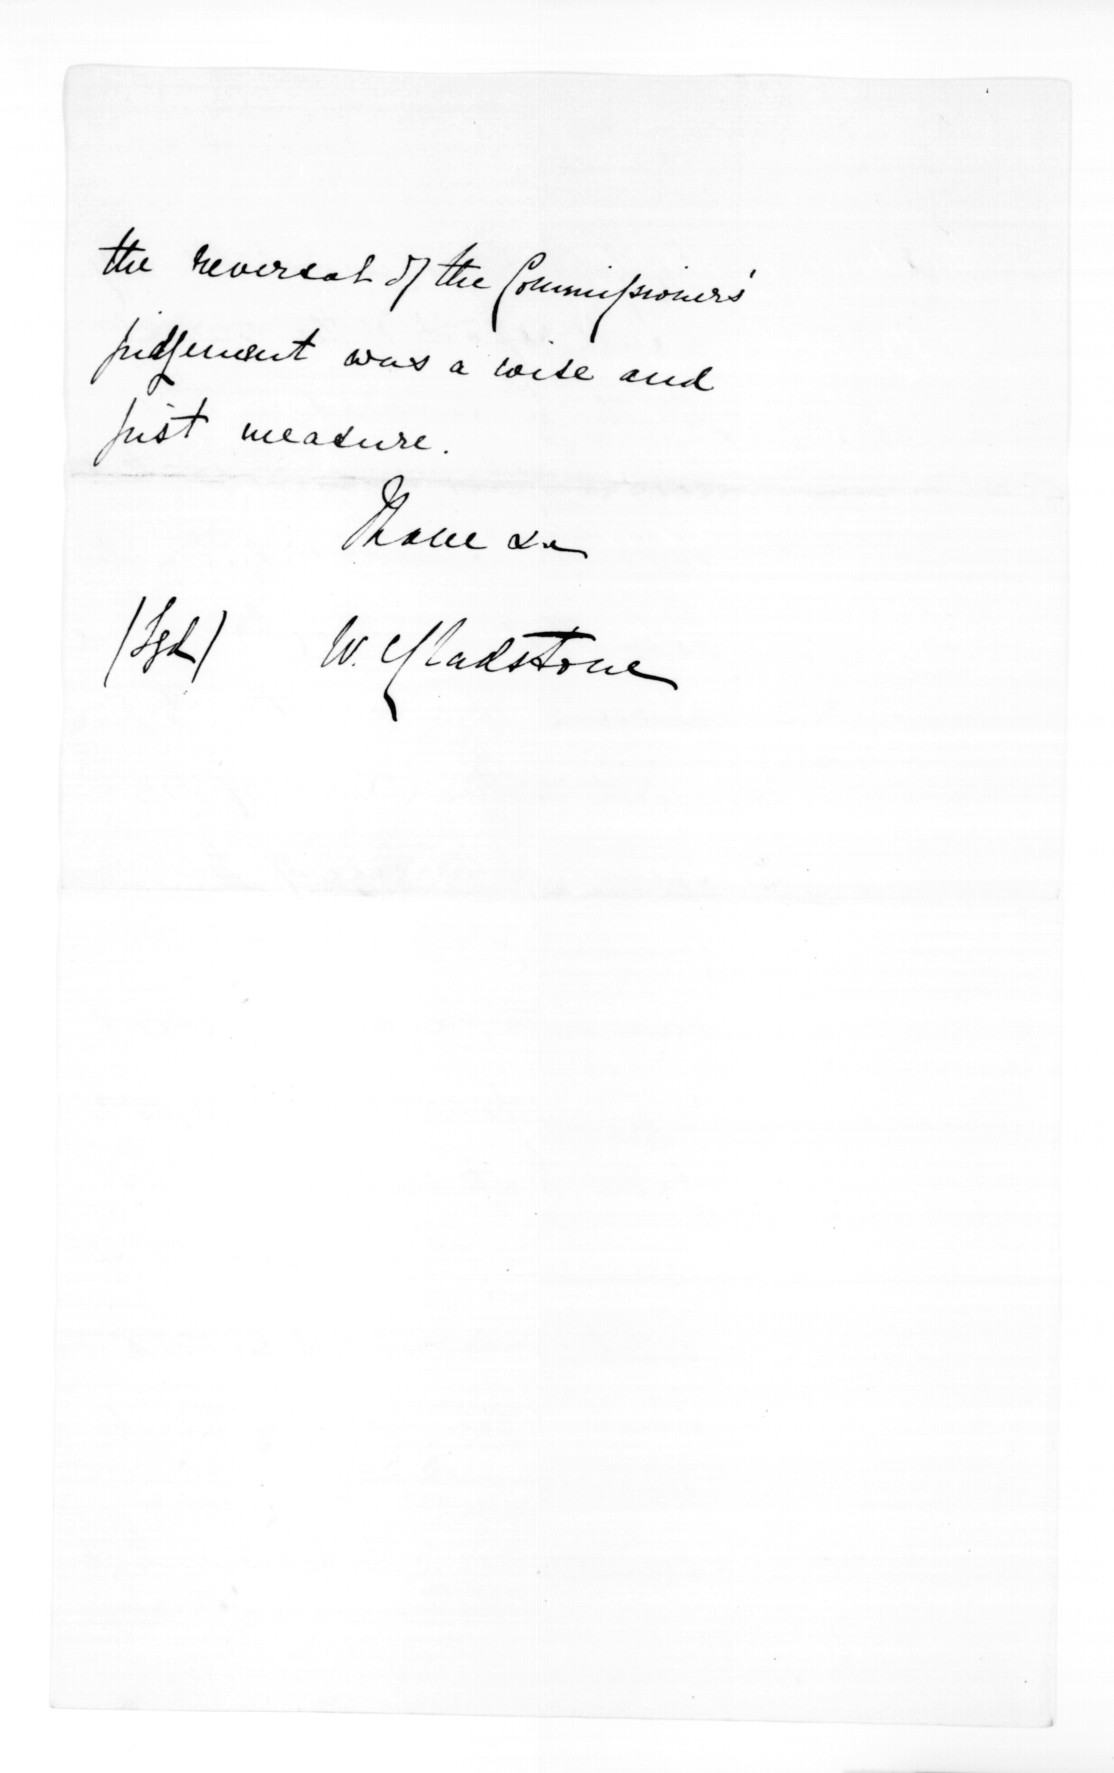 the reversal of the Commissioners'
judgement was a wise and
just measure.
I have &c
(Sgd) W. Gladstone